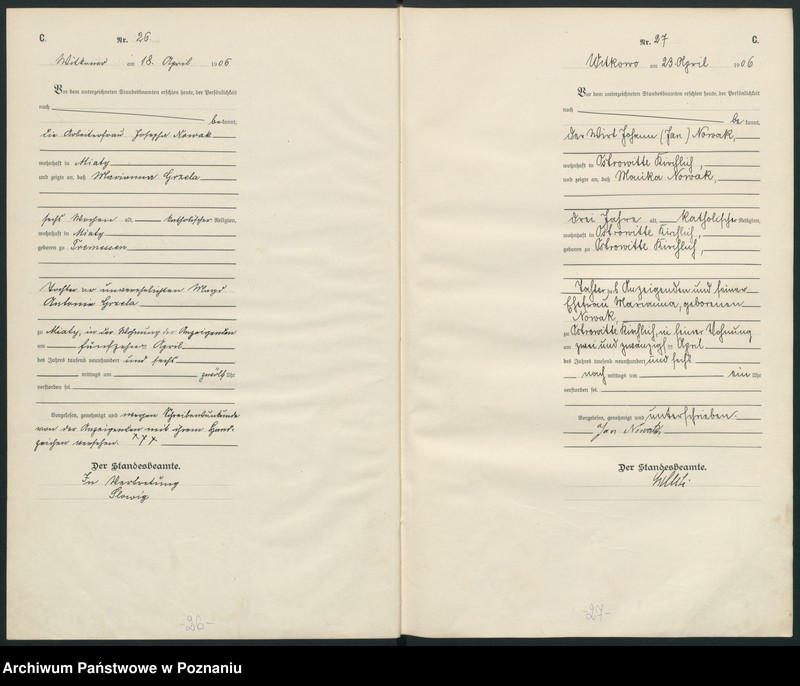 C.
Nr. 26
Witkowo am 18. April 1906
Vor dem unterzeichneten Standesbeamten erschien heute, der Persönlichkeit
nach
bekannt,
die Arbeiterfrau Josepha Nowak
wohnhaft in Miaty
und zeigte an, daß Marianna Grzela
sechs Wochen alt, katholischer Religion,
wohnhaft in Miaty
geboren zu Tremessen
Tochter der unverehelichten Magd
Antonie Grzela
zu Miaty, in der Wohnung der Anzeigenden
am fünfzehnten April
des Jahres tausend neunhundert und sechs
mittags um zwölf Uhr
verstorben sei.
Vorgelesen, genehmigt und wegen Schreibensunkunde
von der Anzeigenden mit ihrem Hand-
zeichen versehen. XXX
Der Standesbeamte.
In Vertretung
-26-
Nr. 27
C.
Witkowo am 23. April 1906
Vor dem unterzeichneten Standesbeamten erschien heute, der Persönlichkeit
nach
bekannt,
der Wirt Johann (Jan) Nowak,
wohnhaft in Ostrowitte Kirchlich,
und zeigte an, daß Marika Nowak,
drei Jahre alt, katholischer Religion,
wohnhaft in Ostrowitte Kirchlich,
geboren zu Ostrowitte Kirchlich,
Tochter des Anzeigenden und seiner
Ehefrau Marianna, geborenen
Nowak,
zu Ostrowitte Kirchlich, in seiner Wohnung
am zwei und zwanzigsten April
des Jahres tausend neunhundert und sechs
nach mittags um ein Uhr
verstorben sei.
Vorgelesen, genehmigt und unterschrieben.
Jan Nowak,
Der Standesbeamte.
-27-
Archiwum Państwowe w Poznaniu